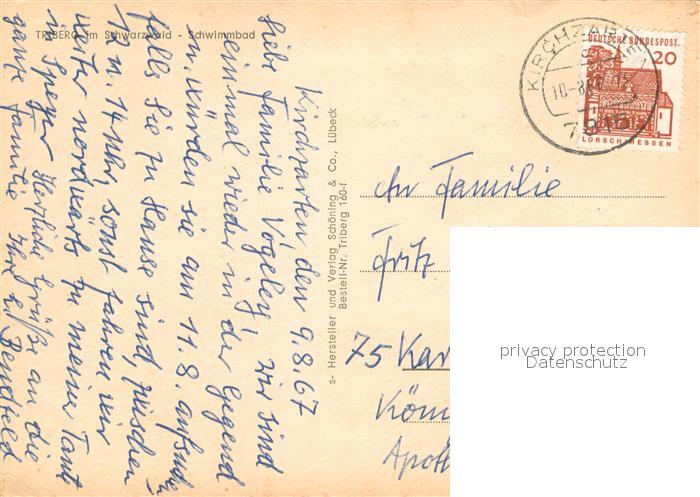 TRIBERG im Schwarzwald - Schwimmbad
Kirchzarten den 9.8.67
Liebe Familie Vogeley! Wir sind
einmal wieder in der Gegend
u. würden sie am 11.8. aufsuchen
falls Sie zu Hause sind, zwischen
12 u. 14 Uhr, sonst fahren wir
weiter nordwärts zu meiner Tante
in Speyer. Herzliche Grüße an die
ganze Familie Ihre
s- Hersteller und Verlag Schöning & Co., Lübeck
Bestell-Nr. Triberg 160-f
KIRCHZARTEN
7815
DEUTSCHE BUNDESPOST
20
LORSCH/HESSEN
An Familie
Fritz
75 Kar
Apoth
privacy protection
Datenschutz